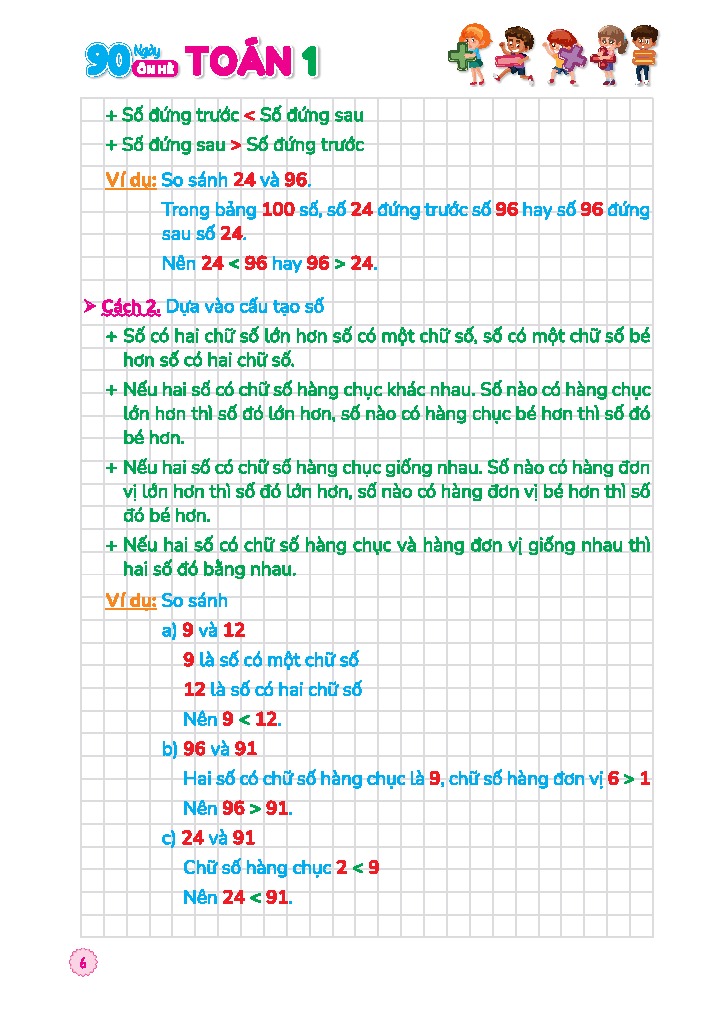 90 Ngày ÔN HÈ TOÁN 1
+ Số đứng trước < Số đứng sau
+ Số đứng sau > Số đứng trước
Ví dụ: So sánh 24 và 96.
Trong bảng 100 số, số 24 đứng trước số 96 hay số 96 đứng
sau số 24.
Nên 24 < 96 hay 96 > 24.
➤ Cách 2. Dựa vào cấu tạo số
+ Số có hai chữ số lớn hơn số có một chữ số, số có một chữ số bé
hơn số có hai chữ số.
+ Nếu hai số có chữ số hàng chục khác nhau. Số nào có hàng chục
lớn hơn thì số đó lớn hơn, số nào có hàng chục bé hơn thì số đó
bé hơn.
+ Nếu hai số có chữ số hàng chục giống nhau. Số nào có hàng đơn
vị lớn hơn thì số đó lớn hơn, số nào có hàng đơn vị bé hơn thì số
đó bé hơn.
+ Nếu hai số có chữ số hàng chục và hàng đơn vị giống nhau thì
hai số đó bằng nhau.
Ví dụ: So sánh
a) 9 và 12
9 là số có một chữ số
12 là số có hai chữ số
Nên 9 < 12.
b) 96 và 91
Hai số có chữ số hàng chục là 9, chữ số hàng đơn vị 6 > 1
Nên 96 > 91.
c) 24 và 91
Chữ số hàng chục 2 < 9
Nên 24 < 91.
6